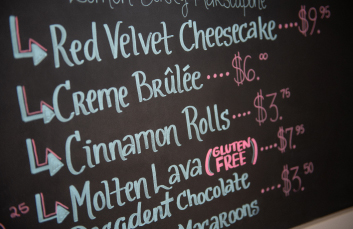 Red Velvet Cheesecake .... $9.95
Creme Brûlée .... $6.00
Cinnamon Rolls .... $3.75
Molten Lava (GLUTEN FREE) .... $7.95
Decadent Chocolate .... $3.50
25 Macaroons